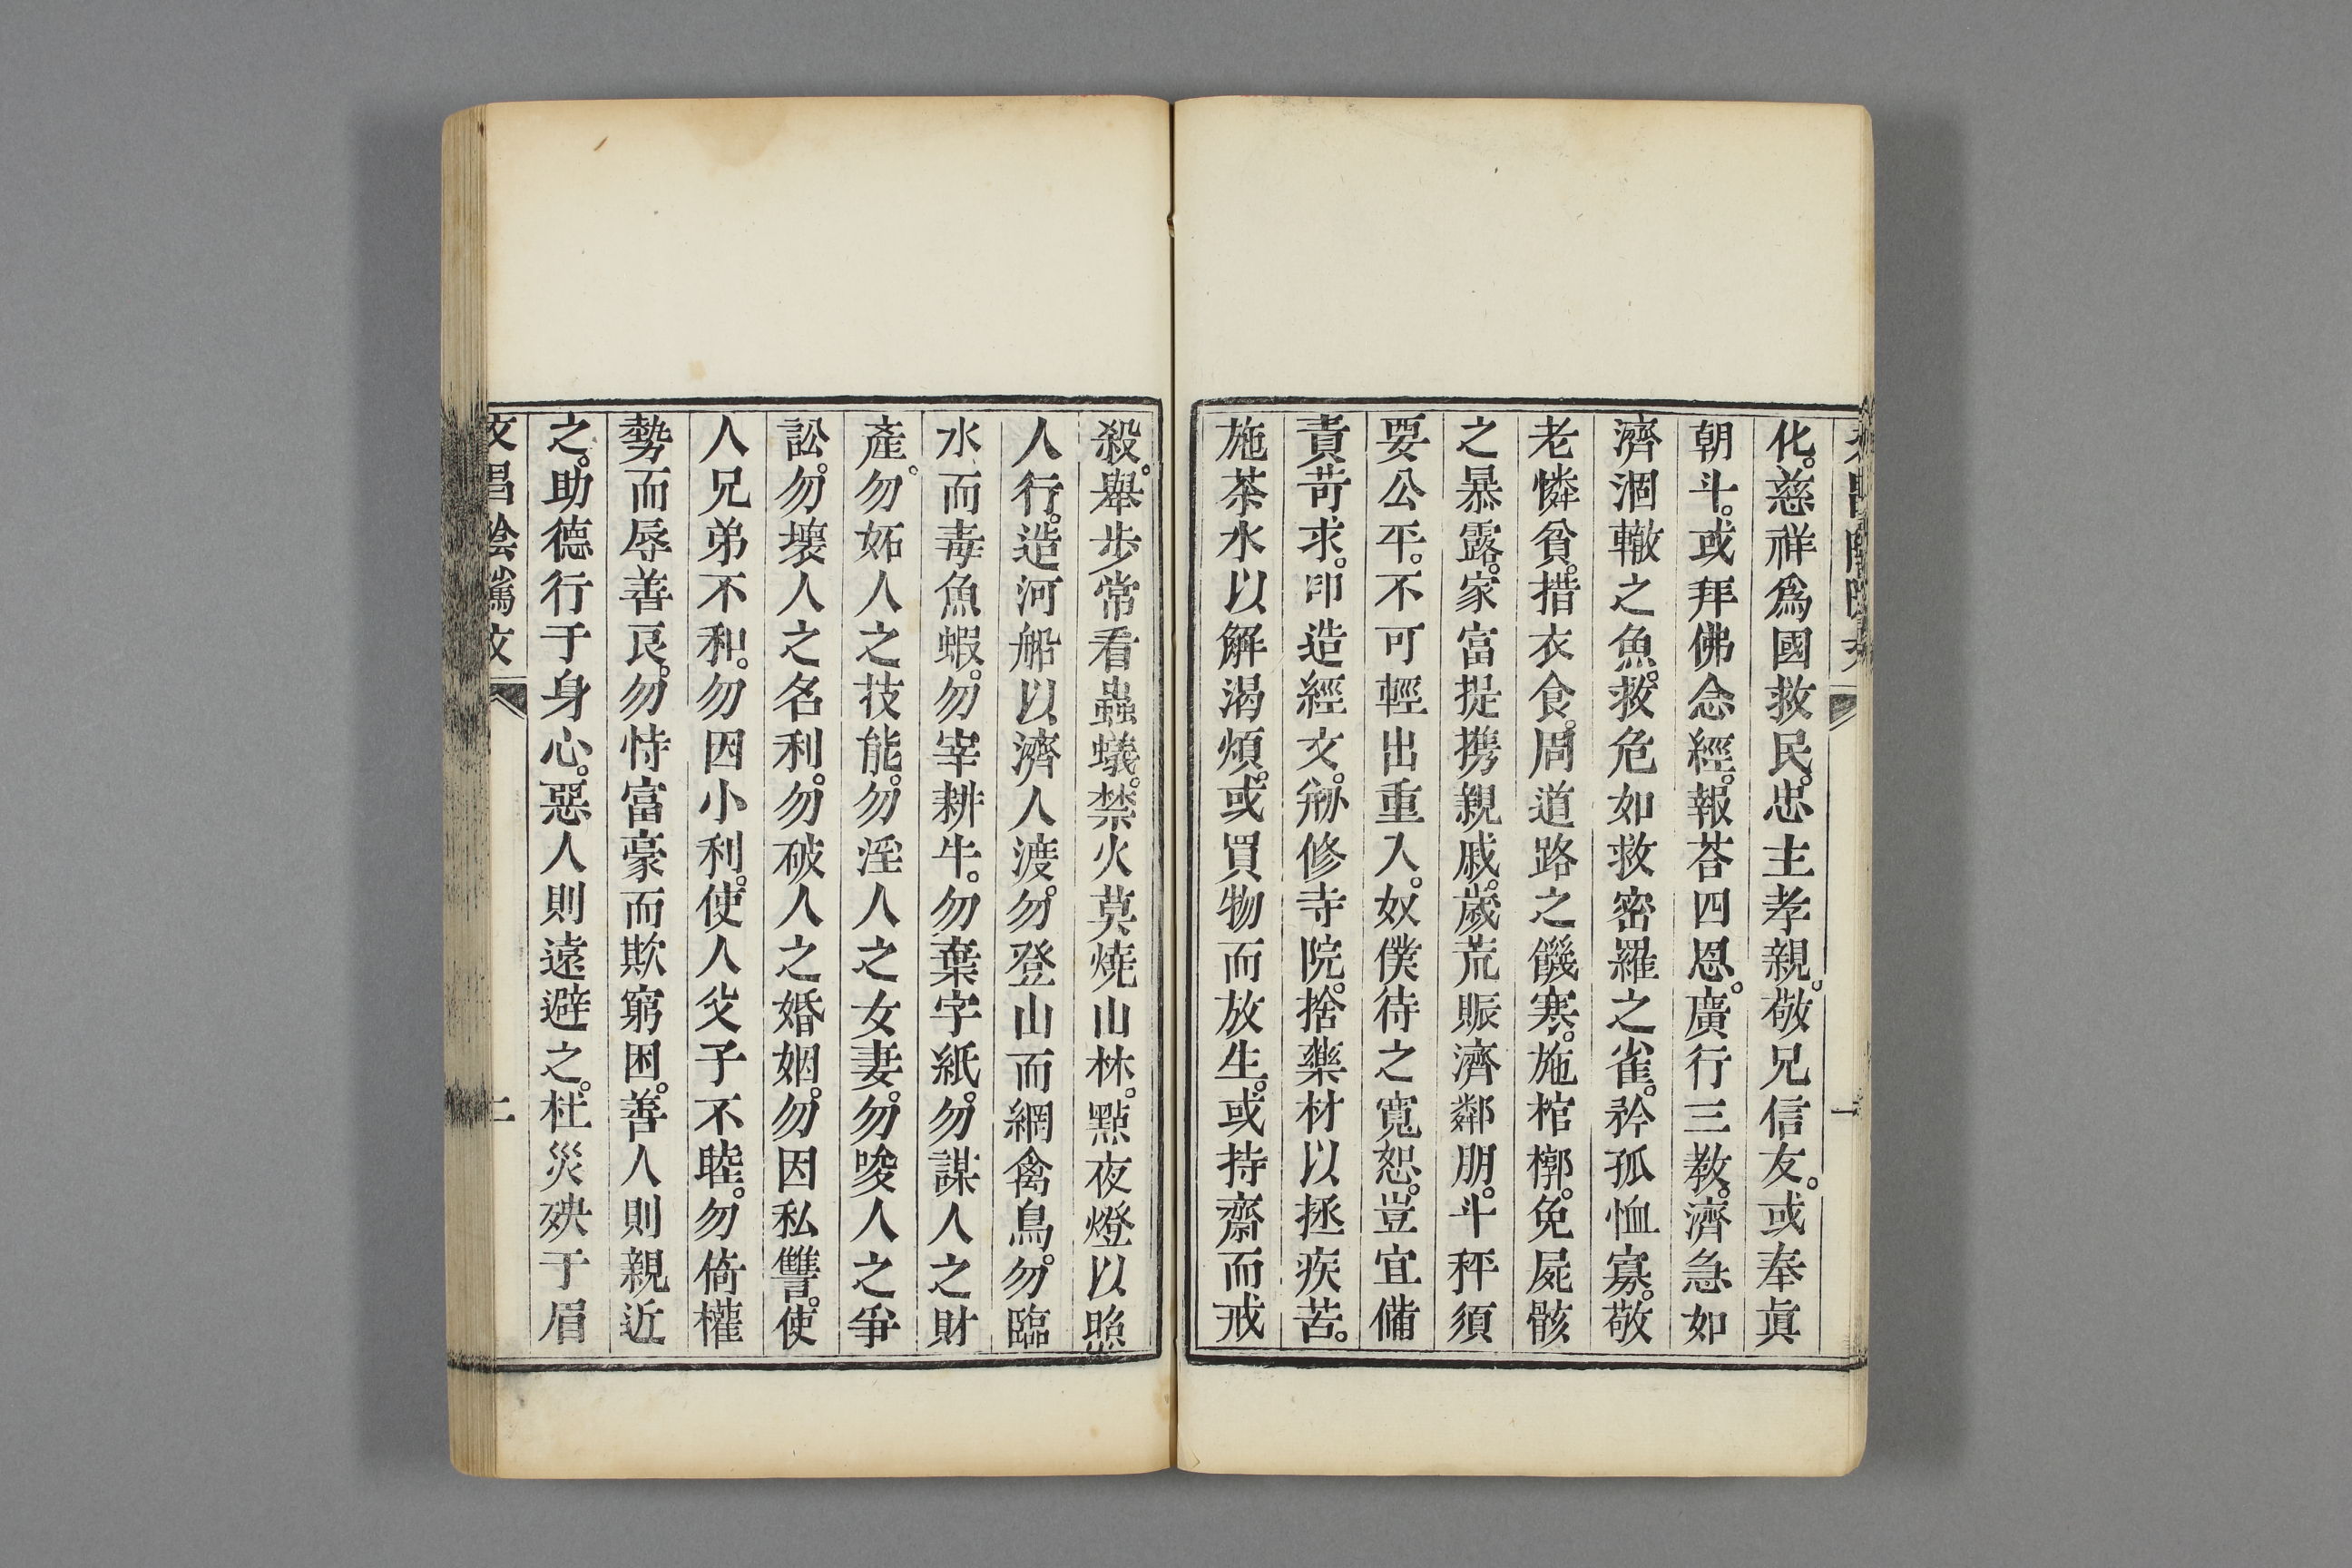 化。慈祥爲國救民。忠主孝親。敬兄信友。或奉眞
朝斗。或拜佛念經。報荅四恩。廣行三教。濟急如
濟涸轍之魚。救危如救密羅之雀。矜孤恤寡。敬
老憐貧。措衣食。周道路之饑寒。施棺槨。免屍骸
之暴露。家富提携親戚。歲荒賑濟鄰朋。斗秤須
要公平。不可輕出重入。奴僕待之寬恕。豈宜備
責苛求。印造經文。刱修寺院。捨藥材以拯疾苦。
施茶水以解渴煩。或買物而放生。或持齋而戒
殺。舉步常看蟲蟻。禁火莫燒山林。點夜燈以照
人行。造河船以濟人渡。勿登山而網禽鳥。勿臨
水而毒魚蝦。勿宰耕牛。勿棄字紙。勿謀人之財
產。勿妬人之技能。勿淫人之女妻。勿唆人之爭
訟。勿壞人之名利。勿破人之婚姻。勿因私讐。使
人兄弟不和。勿因小利。使人父子不睦。勿倚權
勢而辱善良。勿恃富豪而欺窮困。善人則親近
之。助德行于身心。惡人則遠避之。杜災殃于眉
文昌陰騭文
二